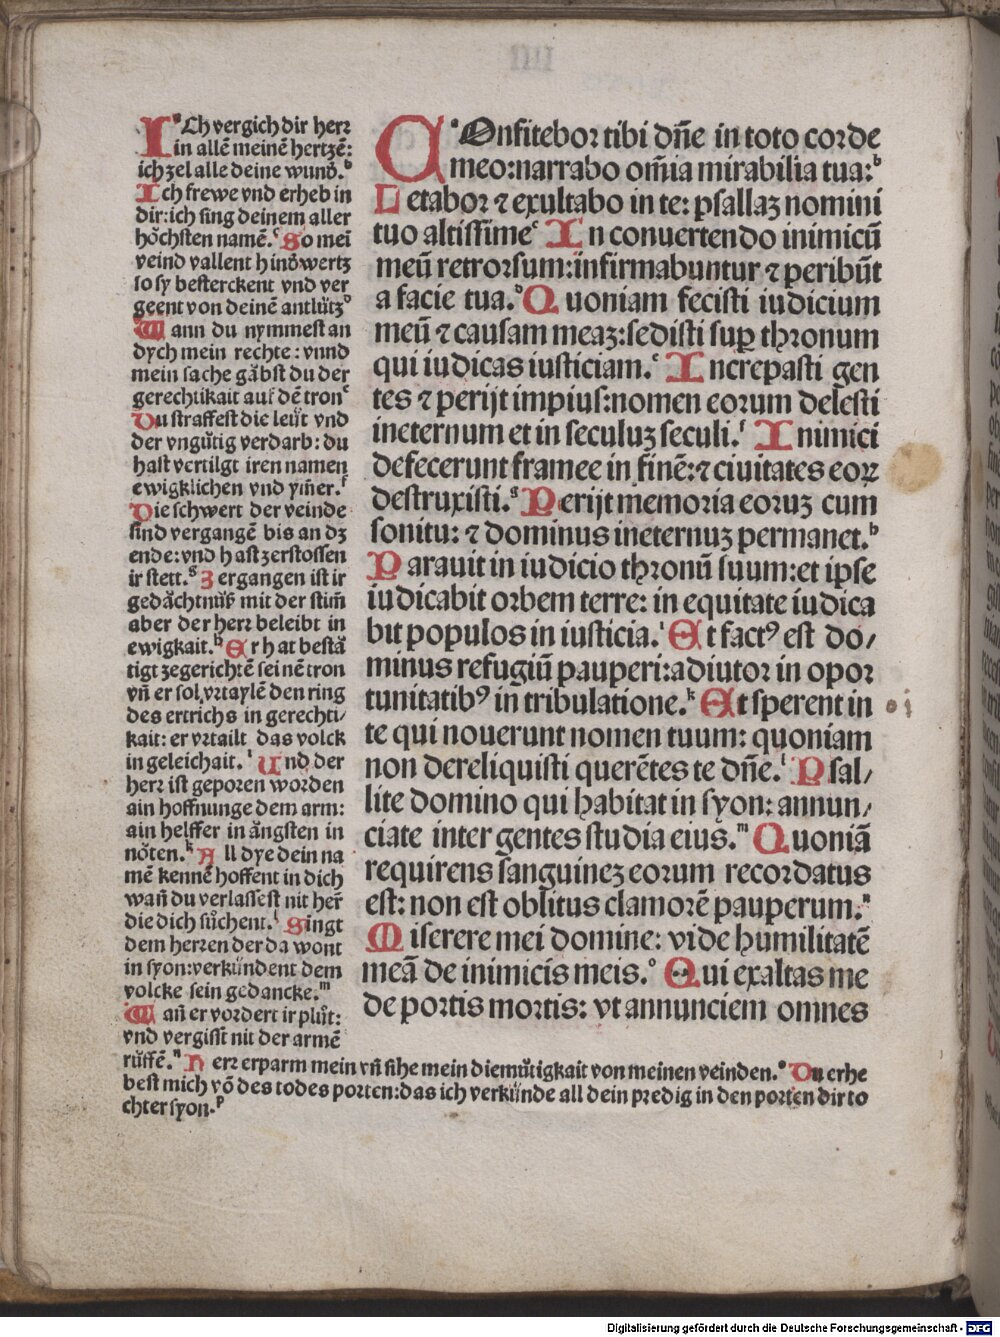 ICh vergich dir herꝛ
in allē meinē hertzē:
ich zel alle deine wund̄.ᵇ
Ich frewe vnd erheb in
dir:ich sing deinem aller
höchsten namē.ᶜ So mei͞
veind vallent hind̄wertz
so sy besterckent vnd ver
geent von deinē antlütz᷎ᵈ
Wann du nymmest an
dych mein rechte: vnnd
mein sache gäbst du der
gerechtikait auf dē tronᵉ
Du straffest die leüt vnd
der vngütig verdarb: du
hast vertilgt iren namen
ewigklichen vnd ym̄er.ᶠ
Die schwert der veinde
sind vergangē bis an dz
ende: vnd hast zerstossen
ir stett.ᵍ Zergangen ist ir
gedächtnüß mit der stim̄
aber der herꝛ beleibt in
ewigkait.ʰ Er hat bestä
tigt zegerichtē seinē tron
vn̄ er sol vrtaylē den ring
des ertrichs in gerechti/
kait: er vrtailt das volck
in geleichait.ⁱ Und der
herꝛ ist geporen worden
ain hoffnunge dem arm:
ain helffer in ängsten in
nöten.ᵏ All dye dein na
mē kennē hoffent in dich
wan̄ du verlassest nit her̄
die dich süchent.ˡ Singt
dem herꝛen der da wont
in syon:verkündent dem
volcke sein gedancke.ᵐ
Wan̄ er vordert ir plüt:
vnd vergisst nit der armē
rüffē.ⁿ Herꝛ erparm mein vn̄ sihe mein diemütigkait von meinen veinden.ᵒ Du erhe
best mich vō des todes porten:das ich verkünde all dein predig in den porten dir to
chter syon.ᵖ
ᵃCOnfitebor tibi dn̄e in toto corde
meo:narrabo om̄ia mirabilia tua:ᵇ
Letabor ⁊ exultabo in te: psallaꝫ nomini
tuo altissimeᶜ In conuertendo inimicū
meū retrorsum:infirmabuntur ⁊ peribūt
a facie tua.ᵈ Quoniam fecisti iudicium
meū ⁊ causam meaꝫ:sedisti suꝑ thronum
qui iudicas iusticiam.ᵉ Increpasti gen
tes ⁊ perijt impius:nomen eorum delesti
ineternum et in seculuꝫ seculi.ᶠ Inimici
defecerunt framee in finē:⁊ ciuitates eoꝝ
destruxisti.ᵍ Perijt memoria eoruꝫ cum
sonitu: ⁊ dominus ineternuꝫ permanet.ʰ
Parauit in iudicio thronū suum:et ipse
iudicabit orbem terre: in equitate iudica
bit populos in iusticia.ⁱ Et factꝰ est do/
minus refugiū pauperi:adiutor in opor
tunitatibꝰ in tribulatione.ᵏ Et sperent in
te qui nouerunt nomen tuum: quoniam
non dereliquisti querētes te dn̄e.ˡ Psal/
lite domino qui habitat in syon: annun/
ciate inter gentes studia eius.ᵐ Quoniā
requirens sanguineꝫ eorum recordatus
est: non est oblitus clamorē pauperum.ⁿ
Miserere mei domine: vide humilitatē
meā de inimicis meis.ᵒ Qui exaltas me
de portis mortis: vt annunciem omnes
Digitalisierung gefördert durch die Deutsche Forschungsgemeinschaft - DFG